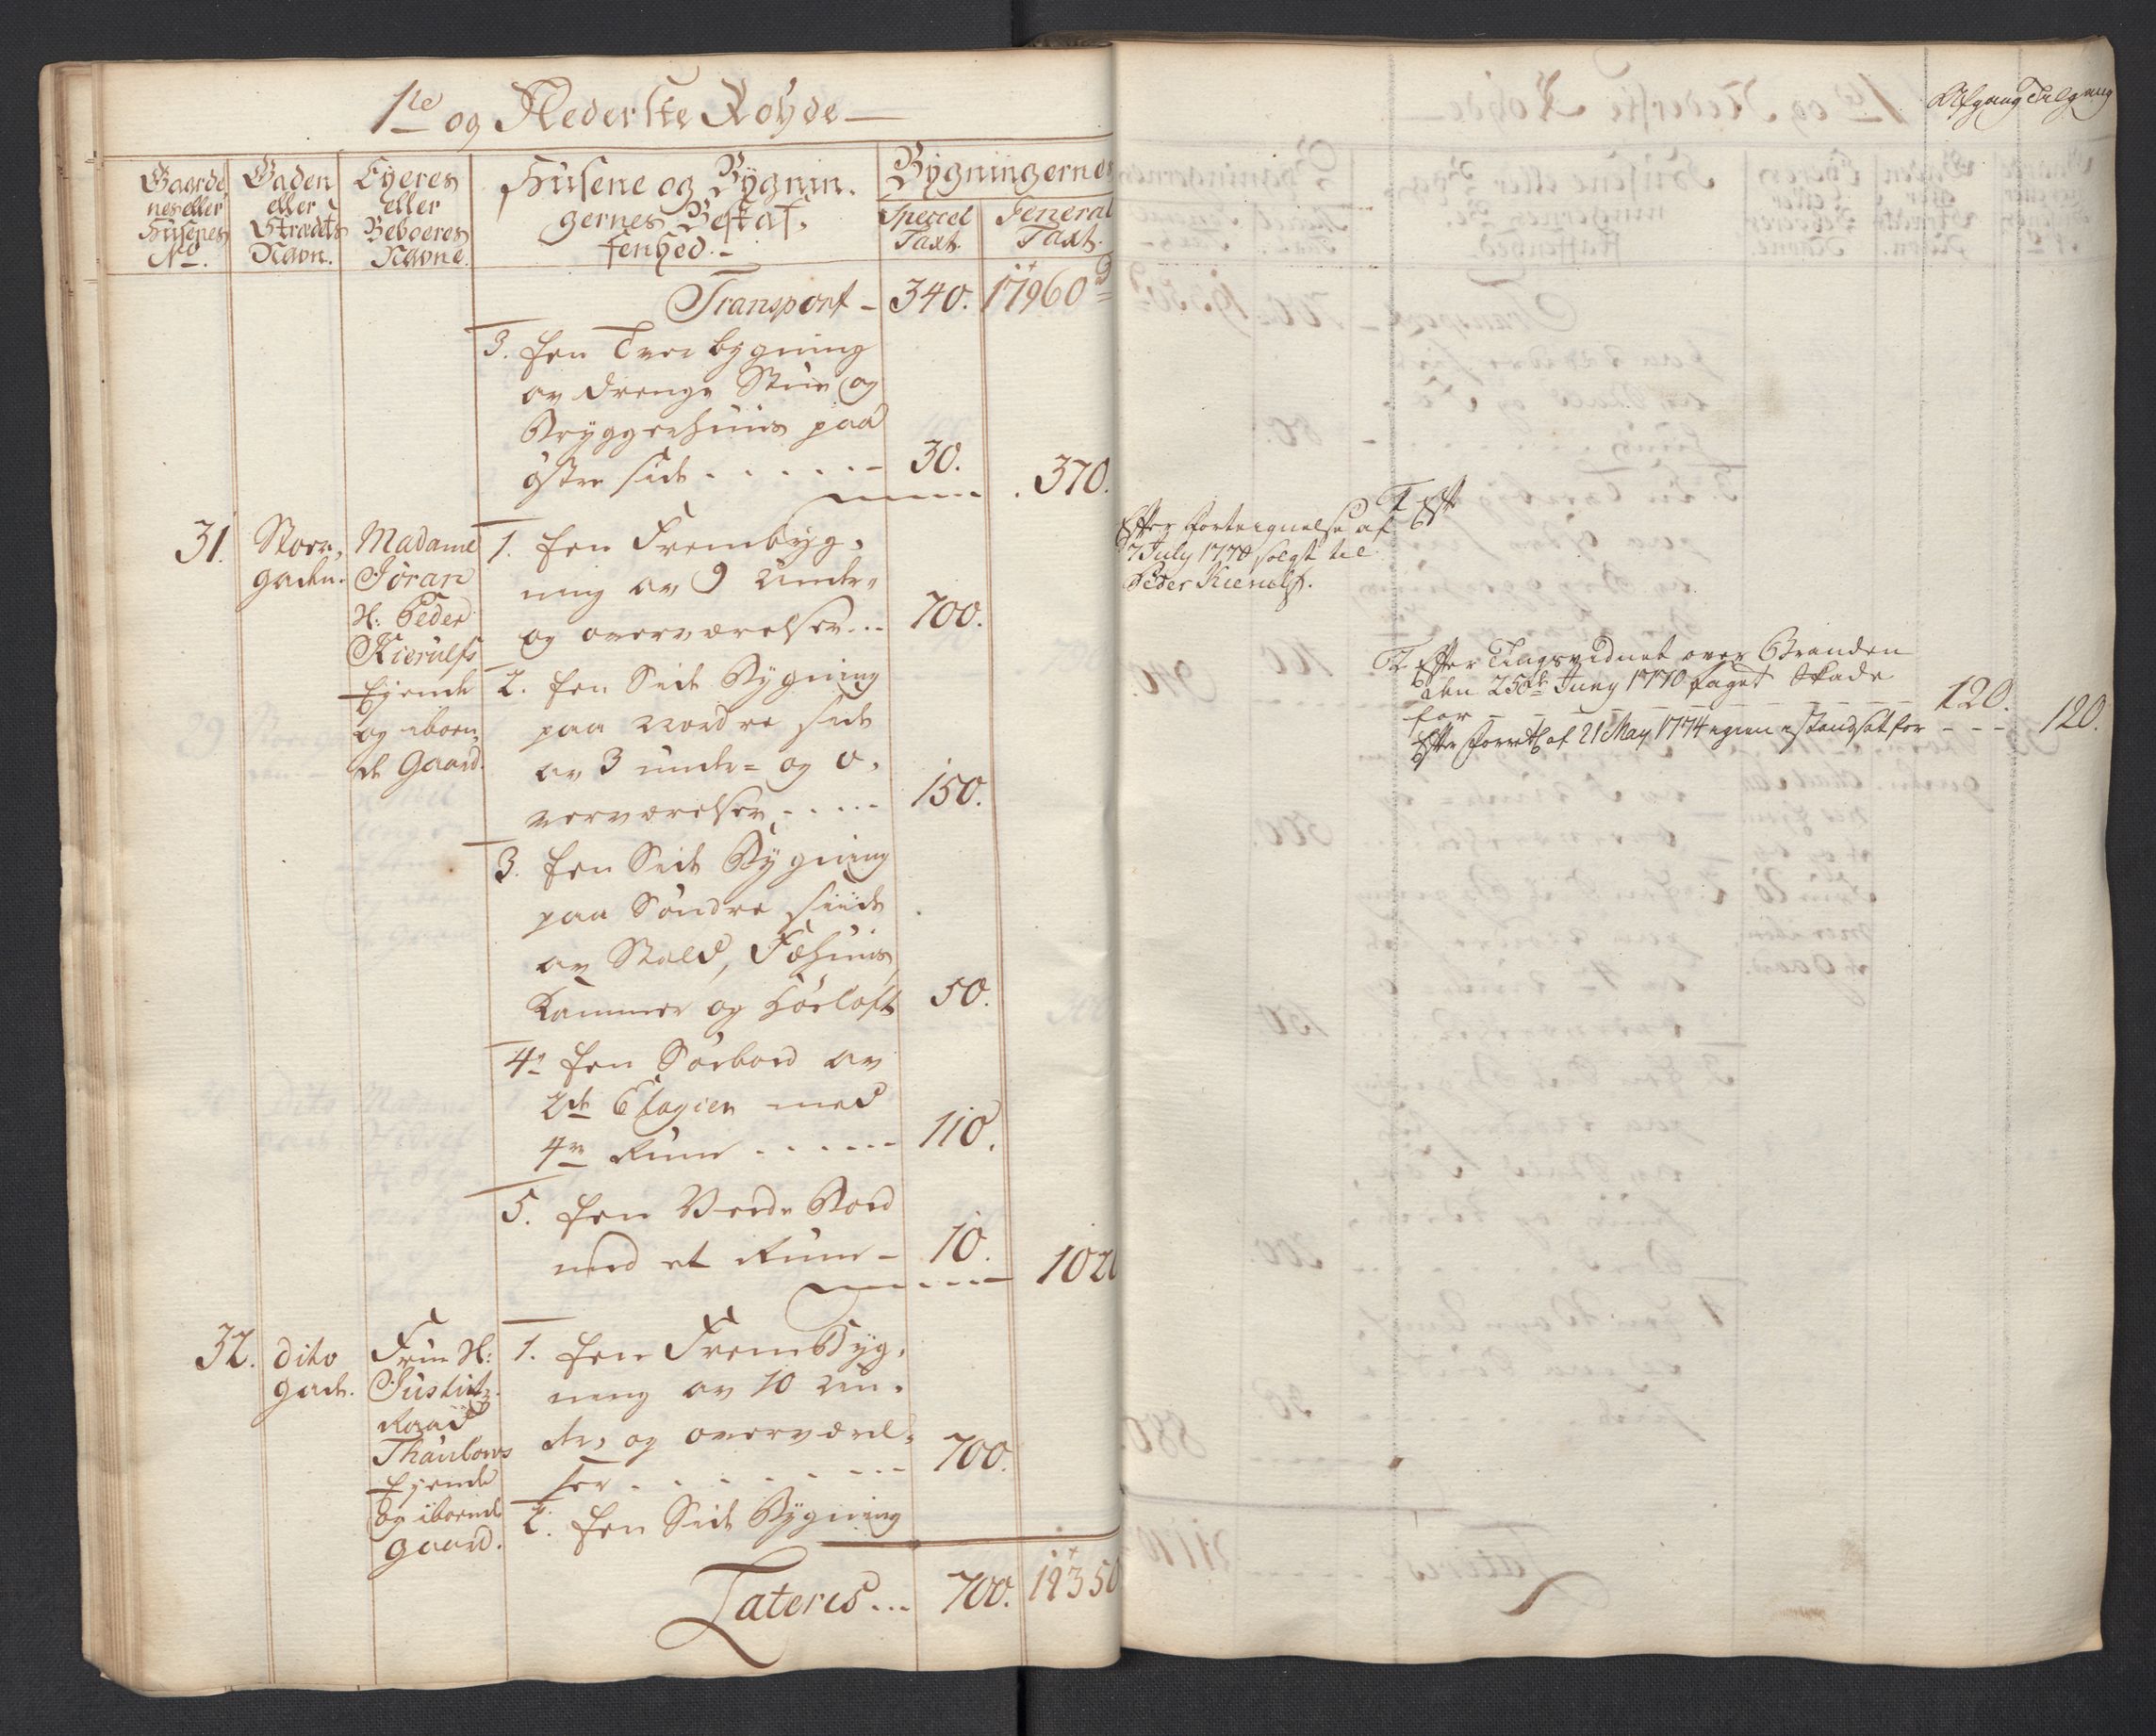 1te og Nederste Rohde
Gaarde
nes eller
Husenes
No.
Gaden
eller
Strædets
Navn.
Eyeres
eller
Beboeres
Navne.
Husene og Bygnin.
gernes Beskaf.
fenhed.
Bygningernes
Speciel
Taxt.
General
Taxt.
Transport - 340. 17960
3. Een Tver bygning
av Drenge Stue og
Bryggerhuus paa
östre side - - - - - 30. 370.
31. Stoer,
gaden.
Madame
Jöran
H: Peder
Kierulfs
Eyende
og iboen,
de Gaard.
1. Een Frembyg,
ning av 9 Under,
og overværelser - - 700.
2. Een Side Bygning
paa Nordre side
av 3 under= og o,
verværelser - - - - 150.
3. Een Side Bygning
paa Söndre siide
av Stald, Fæhuus,
Kammer og Höeloft 50.
4. Een Söebod av
2de Etagien med
4re Rum - - - - - 110.
5. Een Vedr Bod
med et Rum - 10. 102
32. dito
gade.
Frue H:
Justitz
Raad
Thaulows
Eyende
og iboende
gaard.
1. Een Frem Byg,
ning av 10 Un,
der, og overværel,
ser - - - - - - 700.
2. Een Side Bygning
Lateris - - - 700. 19350
Afgang Tilgang
Efter Forteignelse af
7 July 1770 solgt til
Peder Kierulf.
T Efter Tingsvidnet over Branden
den 25de Juny 1770 taget Skade
for - - - - - 120.
Efter Forretg af 21 May 1774 igien istandsat for - - - 120.